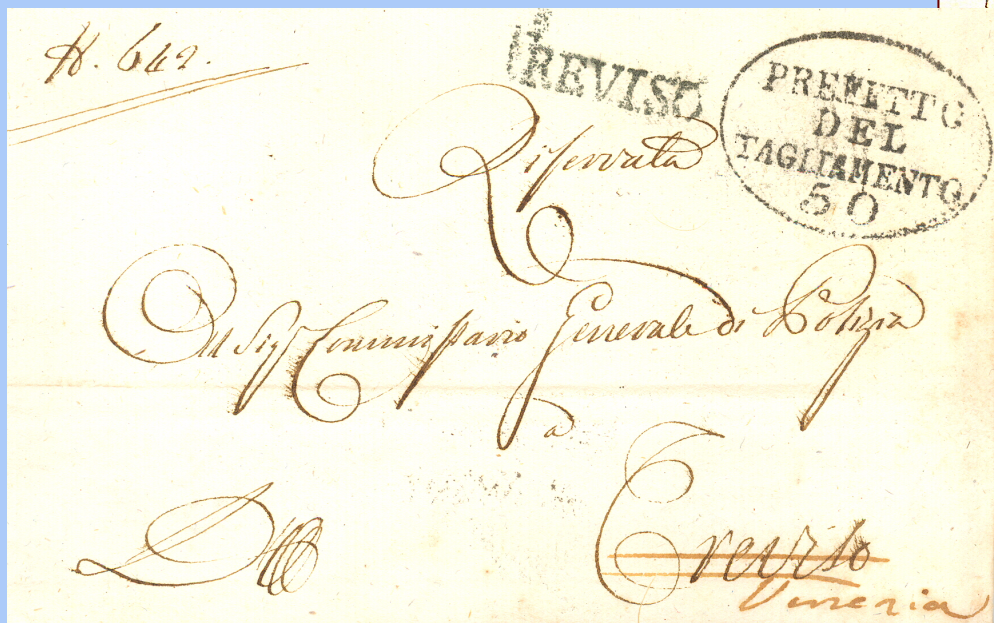 N. 642.
TREVISO
PREFETTO
DEL
TAGLIAMENTO
50
Riservata
Al Sigr Commissario Generale di Polizia
a
Treviso
Venezia